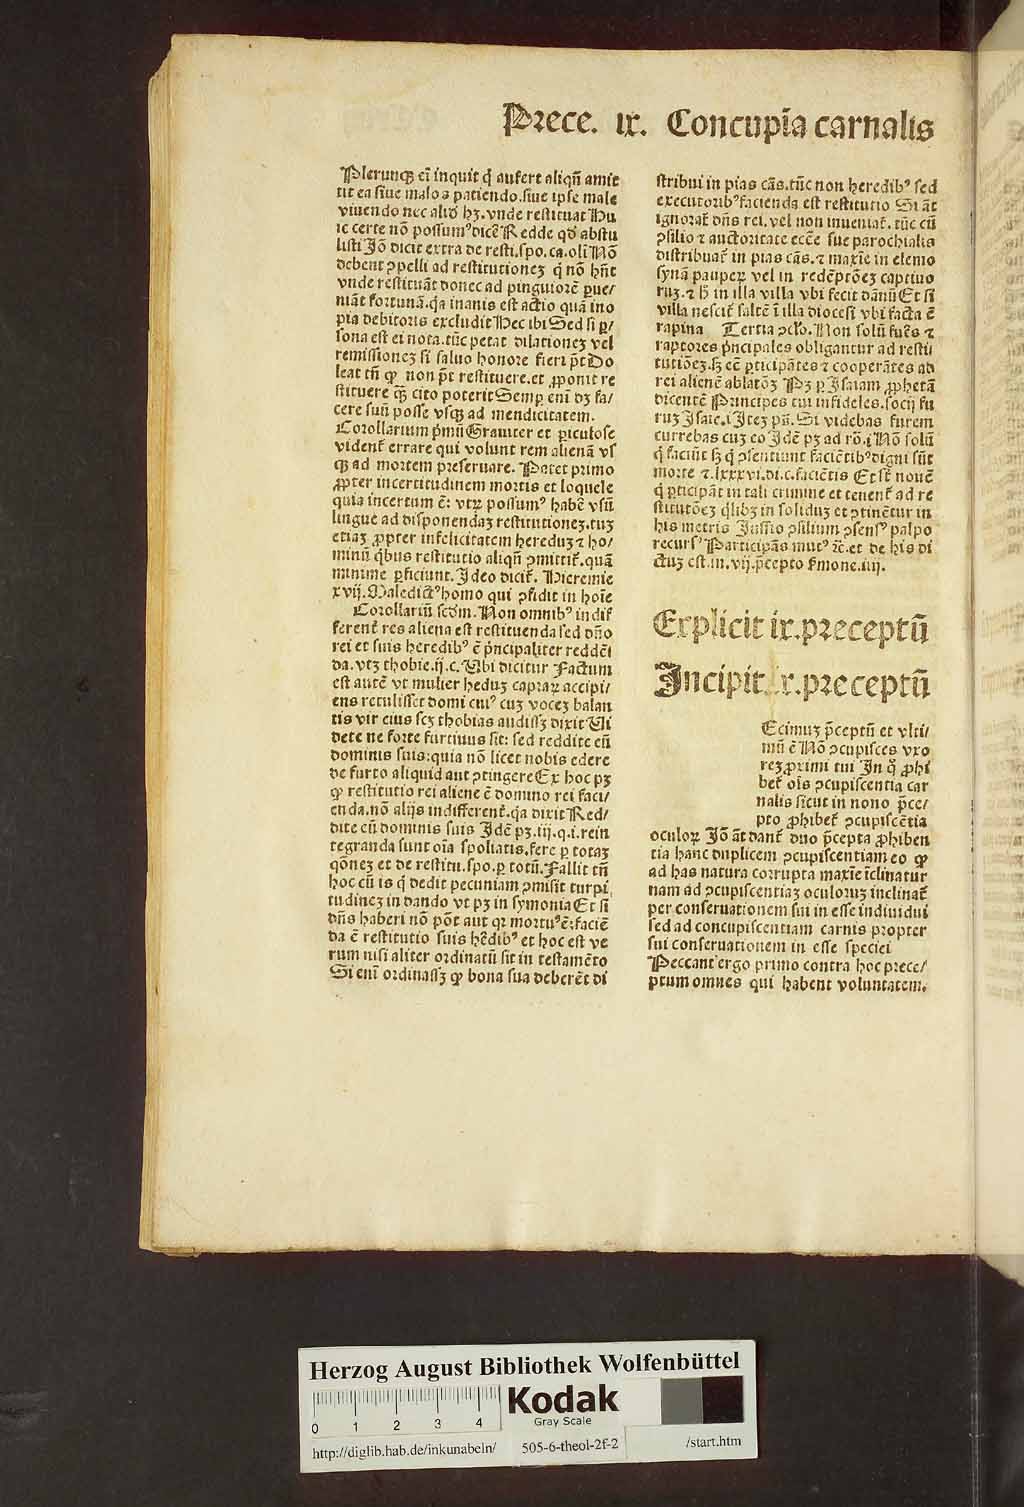 Prece. ix. Concupĩa carnalis
Plerunqꝫ eĩ inquit q̃ aufert aliqñ amit
tit ea siue malos patiendo. siue ipse male
viuendo nec aliđ hꝫ. vnde restituat Hu
ic certe nõ possumꝰ dicẽ Redde qđ abstu
listi Jõ dicit extra de resti. spo. ca. oli᷑ Nõ
debent ꝯpelli ad restitutionez q̃ nõ hñt
vnde restituãt donec ad pinguiorẽ ꝑue/
niãt fortunã. q̃a inanis est actio quã ino
pia debitoris excludit Hec ibi Sed si ꝑ/
sona est ei nota. tũc petat dilationez vel
remissionez si saluo honore fieri põt Do
leat tñ ꝙ non põt restituere. et ꝓponit re
stituere qꝫ cito poterit Semꝑ eni᷑ dꝫ fa/
cere suũ posse vsqꝫ ad mendicitatem.
Corollarium p̃mũ Grauiter et ꝑiculose
vident᷑ errare qui volunt rem alienã vs
qꝫ ad mortem preseruare. Patet primo
ꝓpter incertitudinem mortis et loquele
quia incertum ẽ: vtꝝ possumꝰ habẽ vsũ
lingue ad disponendaz restitutionez. tuz
etiaz ꝓpter infelicitatem hereduz ⁊ ho/
minũ q̃bus restitutio aliqñ ꝯmittit᷑. quã
minime ꝑficiunt. Ideo dicit᷑. Hieremie
xvij. Maledictꝰ homo qui ꝯfidit in hoĩe
Corollariũ scđm. Non omnibꝰ indif
ferent᷑ res aliena est restituenda sed dño
rei et suis heredibꝰ ẽ p̃ncipaliter reddẽi
da. vtꝫ thobie. ij. c. Vbi dicitur Factum
est autẽ vt mulier heduz caprarꝝ accipi/
ens retulisset domi cuiꝰ cuz vocez balan
tis vir eius scꝫ thobias audissꝫ dixit Vi
dete ne forte furtiuus sit: sed reddite eũ
dominis suis: quia nõ licet nobis edere
de furto aliquid aut ꝯtingere Ex hoc pꝫ
ꝙ restitutio rei aliene ẽ domino rei faci/
enda. nõ alijs indifferent᷑. q̃a dixit Red/
dite eũ dominis suis Idẽ pꝫ. iij. q. i. rein
tegranda sunt oĩa spoliatis. fere ꝑ totaz
q̃onez et de restitu. spo. ꝑ totũ. Fallit tñ
hoc cũ is q̃ dedit pecuniam ꝯmisit turpi
tudinez in dando vt pꝫ in symonia Et si
dñs haberi nõ põt aut qꝛ mortuꝰ ẽ: faciẽ
da ẽ restitutio suis heredibꝰ et hoc est ve
rum nisi aliter ordinatũ sit in testamẽto
Si eni᷑ ordinassꝫ ꝙ bona sua deberẽt di
stribui in pias cãs. tũc non heredibꝰ sed
executoribꝰ facienda est restitutio Si aũt
ignorat᷑ dñs rei. vel non inueniat᷑. tũc cũ
ꝯsilio ⁊ auctoritate eccẽe sue parochialis
distribuat᷑ in pias cãs. ⁊ maxĩe in elemo
synã pauperꝝ vel in redẽptõez captiuo
ruz. ⁊ h̃ in illa villa vbi fecit dãnũ Et si
villa nescit᷑ saltẽ ĩ illa diocesi vbi facta ẽ
rapina Tertia ꝯclo. Non solũ fures ⁊
raptores p̃ncipales obligantur ad resti
tutiões. sꝫ eẽ ꝑticipãtes ⁊ cooperãtes ad
rei alienẽ ablatõz Pꝫ ꝑ Isaiam ꝓphetã
dicentẽ Principes tui infideles. socij fu
ruz Isaie. i Itez pš. Si videbas furem
currebas cuz eo Idẽ pꝫ ad ro. i Nõ solũ
q̃ faciũt sꝫ q̃ ꝯsentiunt faciẽtibꝰ digni sũt
morte ⁊. lxxxvi. di. c. faciẽtis Et sũt nouẽ
q̃ ꝑticipãt in tali crimine et tenent᷑ ad re
stitutõez q̃libꝫ in soliduz et ꝯtinẽtur in
his metris Iussio ꝯsilium ꝯsensꝰ palpo
recursꝰ Participãs mutꝰ ⁊c̃. et de his di
ctuz est. in. vij. p̃cepto s̃mone. iiij.
Explicit ix. preceptũ
Incipit .x. preceptũ
Ecimuz p̃ceptũ et vlti/
mũ ẽ Nõ ꝯcupisces vxo
rez ꝓximi tui In q̃ ꝓhi
bet᷑ oĩs ꝯcupiscentia car
nalis sicut in nono p̃ce/
pto ꝓhibet᷑ ꝯcupiscẽtia
oculoꝝ Jõ ãt dant᷑ duo p̃cepta ꝓhiben
tia hanc duplicem ꝯcupiscentiam eo ꝙ
ad has natura corrupta maxĩe ĩclinatur
nam ad ꝯcupiscentiaz oculoruz inclinat᷑
per conseruationem sui in esse indiuidui
sed ad concupiscentiam carnis propter
sui conseruationem in esse speciei
Peccant ergo primo contra hoc prece/
ptum omnes qui habent voluntatem.
Herzog August Bibliothek Wolfenbüttel
0 1 2 3 4
Kodak
Gray Scale
http://diglib.hab.de/inkunabeln/ 505-6-theol-2f-2 /start.htm